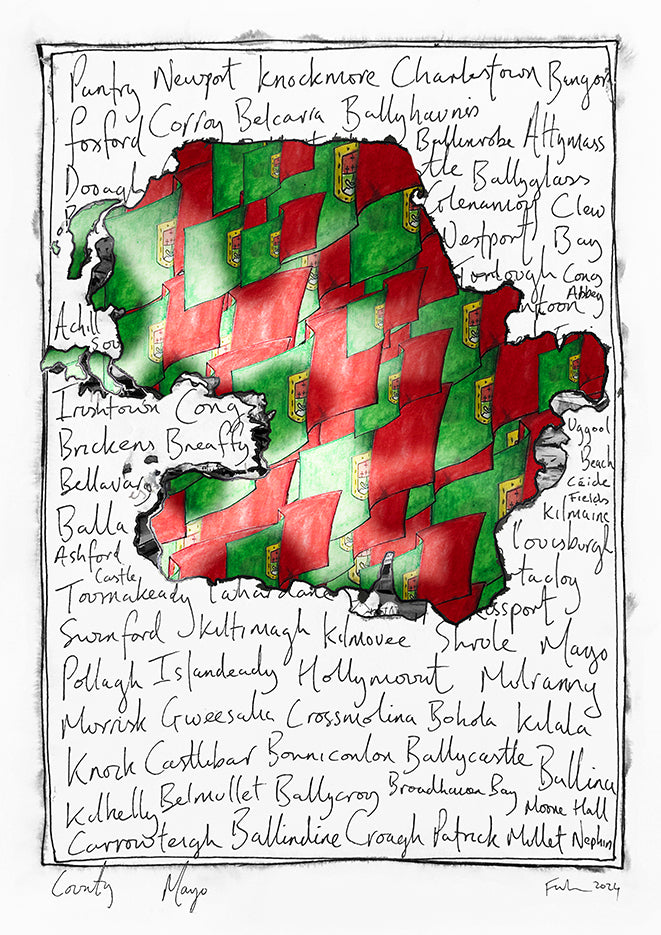 Pantry Newport Knockmore Charlestown Bangor
Foxford Corroy Belcarra Ballyhaunis
Ballinrobe Attymass
Dooagh tle Ballyglass
Glenamoy Clew
Westport Bay
Turlough Cong
Abbey
Achill ntoon
Sou
Irishtown Cong
Brickens Breaffy Uggool
Beach
Bellavar Céide
Fields
Balla Kilmaine
Ashford Louisburgh
Castle
Toormakeady Lahardane tacloy
Rossport
Swinford Kiltimagh Kilmovee Shrule Mayo
Pollagh Islandeady Hollymount Mulranny
Murrisk Gweesalia Crossmolina Bohola Kilala
Knock Castlebar Bonniconlon Ballycastle Ballina
Kilkelly Belmullet Ballycroy Broadhaven Bay Moore Hall
Carrowteigh Ballindine Croagh Patrick Mullet Nephin
County Mayo 2024